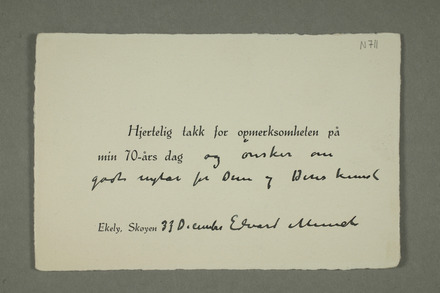 N 711
Hjertelig takk for opmerksomheten på
min 70-års dag og ønsker om
godt nytår for Dem og Deres kunst
Ekely, Skøyen 33 Decembr Edvard Munch